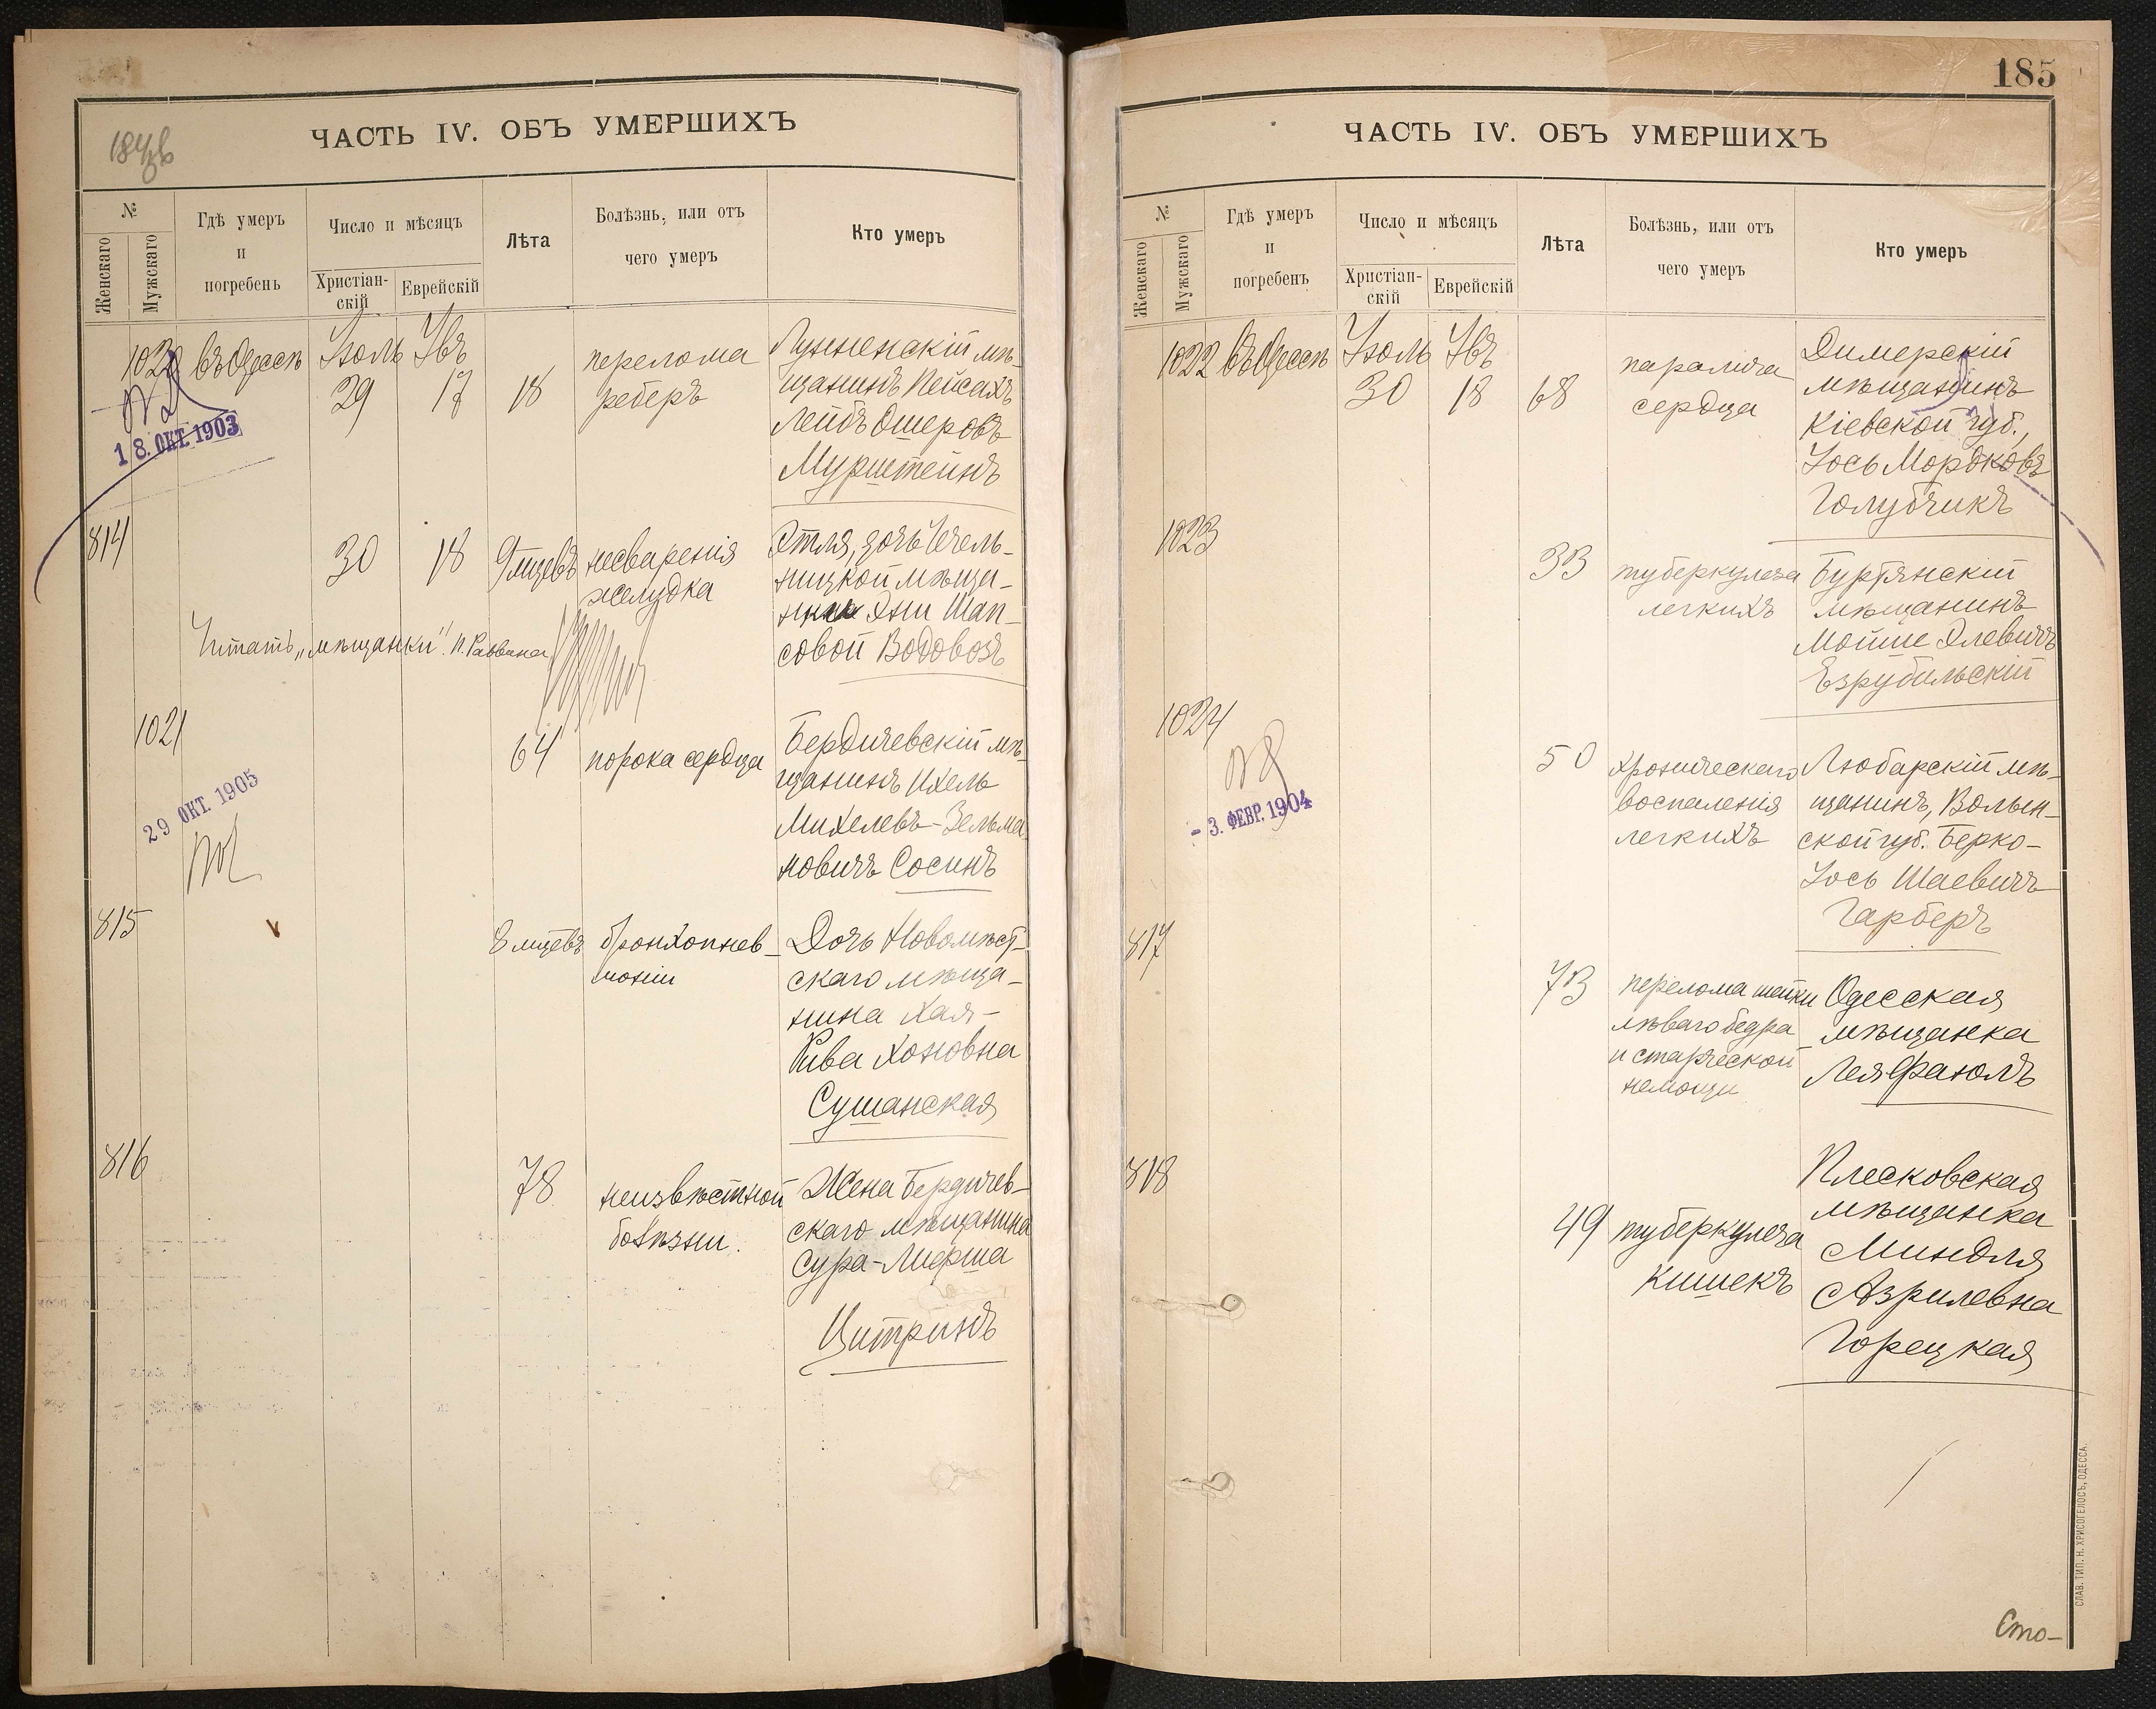 ЧАСТЬ IV. ОБЪ УМЕРШИХЪ
№
Женскаго
Мужскаго
Гдѣ умеръ
и
погребенъ
Число и мѣсяцъ
Христіан-
скій
Еврейскій
Лѣта
Болѣзнь, или отъ
чего умеръ
Кто умеръ
1020 въ Одессѣ Іюль Увъ
29 17 18
перелома
реберъ
мѣ-
щанинъ Пейсахъ
Лейбъ Ошеровъ
Мурштейнъ
18. ОКТ. 1903
814
30 18 9 мцевъ
несваренія
желудка
Этля, дочь Чечель-
ницкой мѣща-
Эни Шап-
совой Водовозъ
Читать „мѣщанки". И. Раввина
1021
64 порока сердца
Бердичевскій мѣ-
щанинъ Ихель
Михелевъ-Зельма
новичъ Сосинъ
29 ОКТ. 1905
815
8 мцевъ бронхопнев-
моніи
Дочь Новомѣст-
скаго мѣща-
нина Хая-
Рива Хоновна
Сушанская
816
78 неизвѣстной
болѣзни.
Жена Бердичев-
скаго мѣщанина
Сура-Мирша
Цитринъ
185
ЧАСТЬ IV. ОБЪ УМЕРШИХЪ
№
Женскаго
Мужскаго
Гдѣ умеръ
и
погребенъ
Число и мѣсяцъ
Христіан-
скій
Еврейскій
Лѣта
Болѣзнь, или отъ
чего умеръ
Кто умеръ
1022 въ Одессѣ Іюль Увъ
30 18 68
паралича
сердца
Димерскій
мѣщанинъ
Кіевской губ.,
Іось Мордковъ
Голубчикъ
1023
33 туберкулеза
легкихъ
мѣщанинъ
Мойше Элевичъ
Езрубильскій
1024
50 хроническаго
воспаленія
легкихъ
Любарскій мѣ-
щанинъ, Волын-
ской губ. Берко-
Іось Шаевичъ
Гарберъ
- 3. ФЕВР. 1904
817
73 перелома шейки
лѣваго бедра
и старческой
немощи
Одесская
мѣщанка
Лея Фаюлъ
818
49 туберкулеза
кишекъ
Плесковская
мѣщанка
Миндля
Азрилевна
Горецкая
Сто-
СЛАВ. ТИП. Н. ХРИСОГЕЛОСЪ, ОДЕССА.